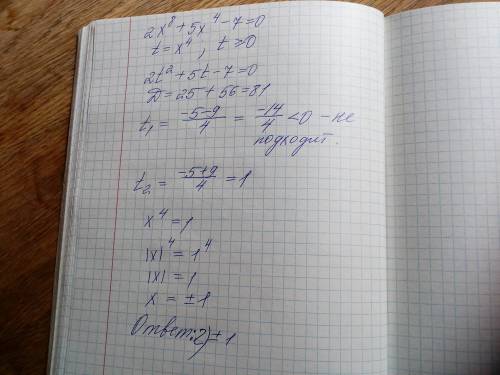 2x⁸+5x⁴-7=0
t=x⁴, t≥0
2t²+5t-7=0
D=25+56=81
t₁ = (-5-9)/4 = -14/4 <0 - не
подходит.
t₂ = (-5+9)/4 = 1
x⁴=1
|x|⁴=1⁴
|x|=1
x = ±1
Ответ: 2) ±1